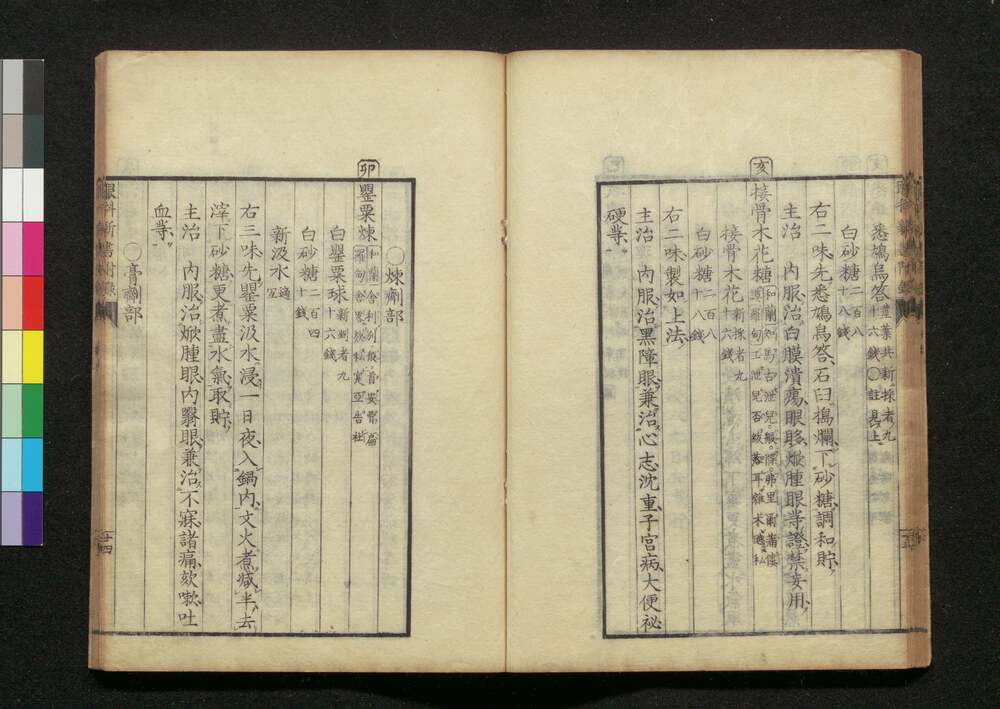 悉鳩鳥答 莖葉共新採者九十六錢〇註見上
白砂糖 二百八十八錢
右二味先悉鳩鳥答石臼搗爛下砂糖調和貯
主治 内服治白膜潰瘍眼眵焮腫眼等證禁妄用
亥 接骨木花糖
接骨木花 新採者九十六錢
白砂糖 二百八十八錢
右二味製如上法
主治 内服治黑障眼兼治心志沈重子宮病大便祕
硬等
卯 罌粟煉
〇煉劑部
白罌粟球 新剉者九十六錢
白砂糖 二百四十錢
新汲水 適宜
右三味先罌粟汲水浸一日夜入鍋内文火煮減半去
滓下砂糖更煮盡水氣取貯
主治 内服治焮腫眼内翳眼兼治不寐諸痛欬嗽吐
血等
〇膏劑部
眼科新書附錄
廿四